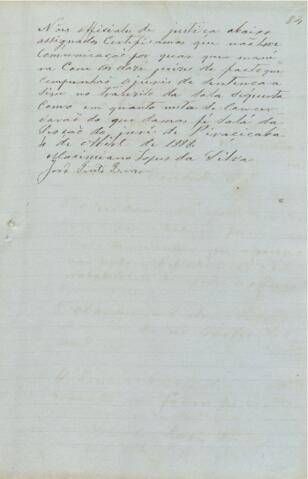 84
Nós officiaes de justiça abaixo
assignados Certificamos que não houve
Comunicação por quar que manei
ra Com os doze juizes de facto que
compunhão o jurio de sentença
no tranzito da sala Siquereta
Como em quanto nesta se Conser
varão do que damos fé Sala da
Secção do juri de Piracicaba
4 de Abril de 1886.
Maximiano Lopes da Silva
João